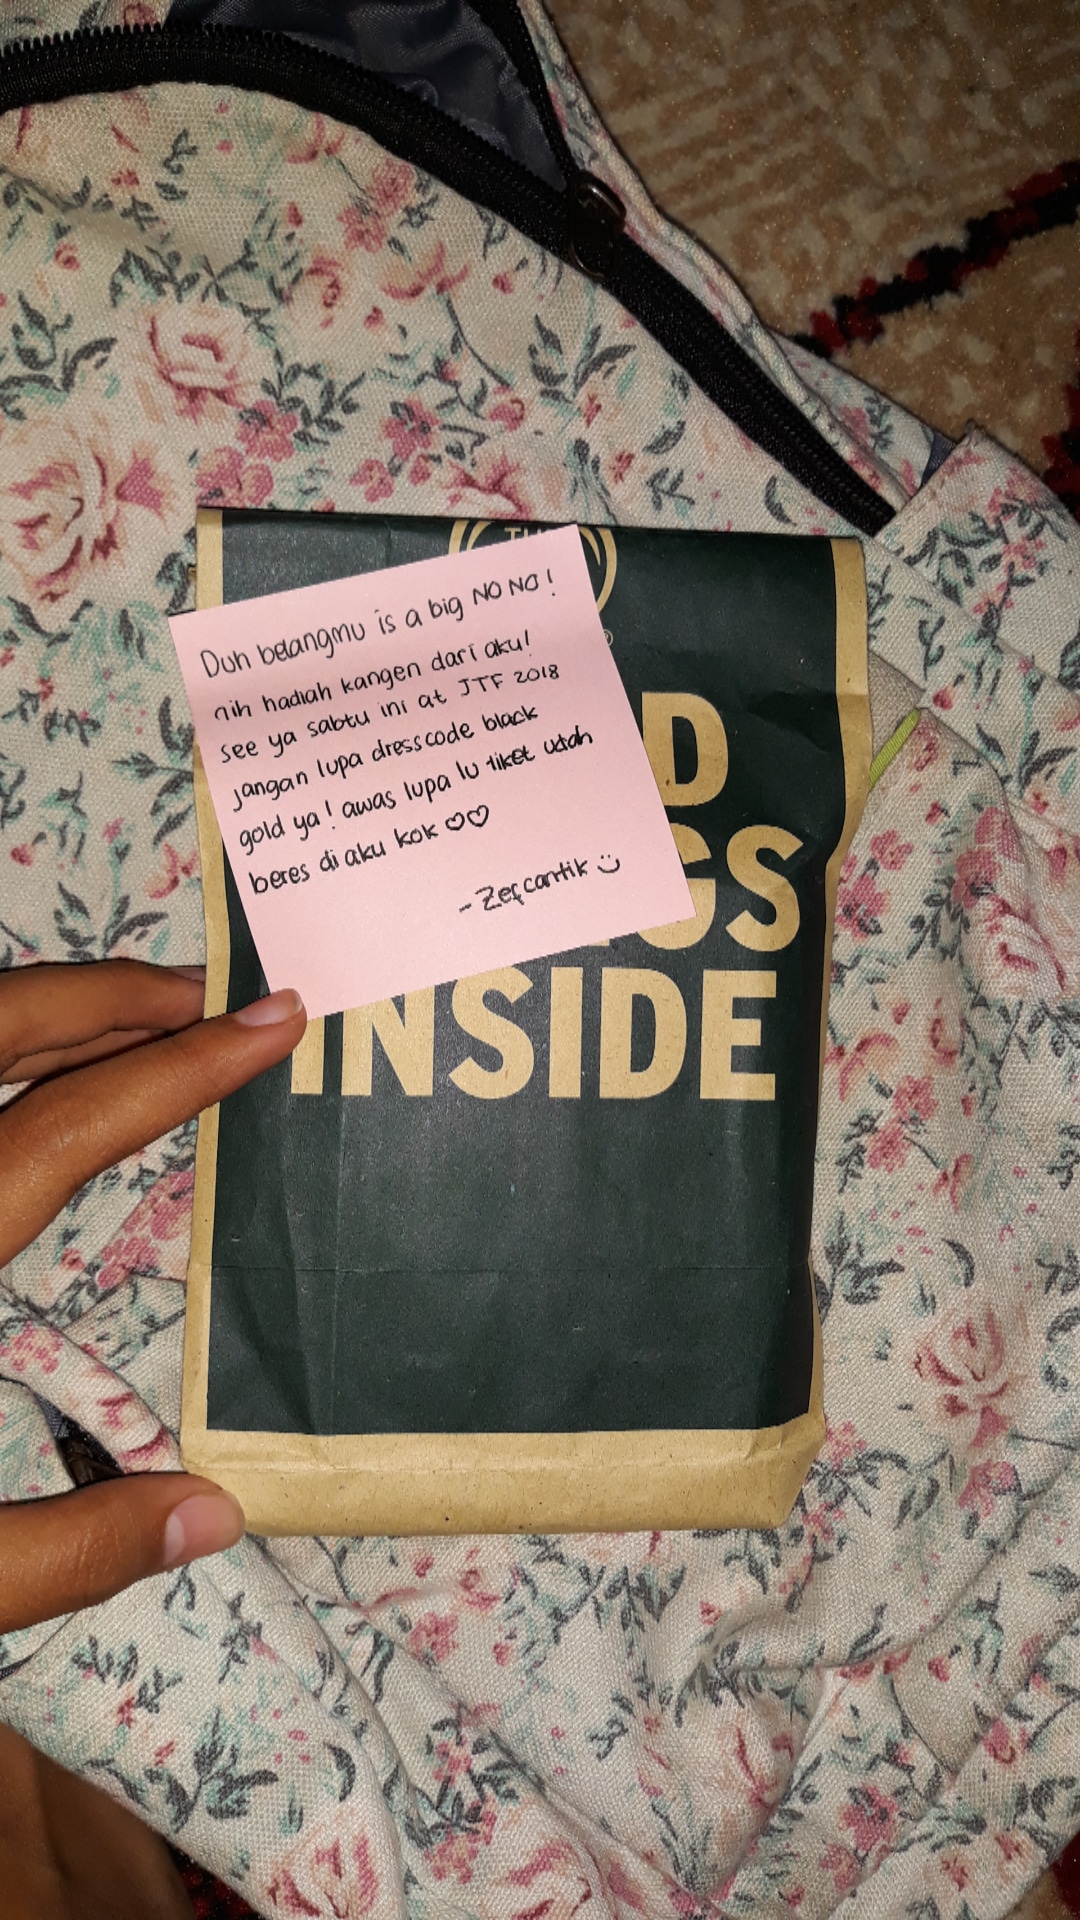 Duh belangmu is a big NO NO!
nih hadiah kangen dari aku!
see ya sabtu ini at JTF 2018
jangan lupa dresscode black
gold ya! awas lupa lu tiket udah
beres di aku kok ♡♡
- Zefcantik
D
GS
INSIDE